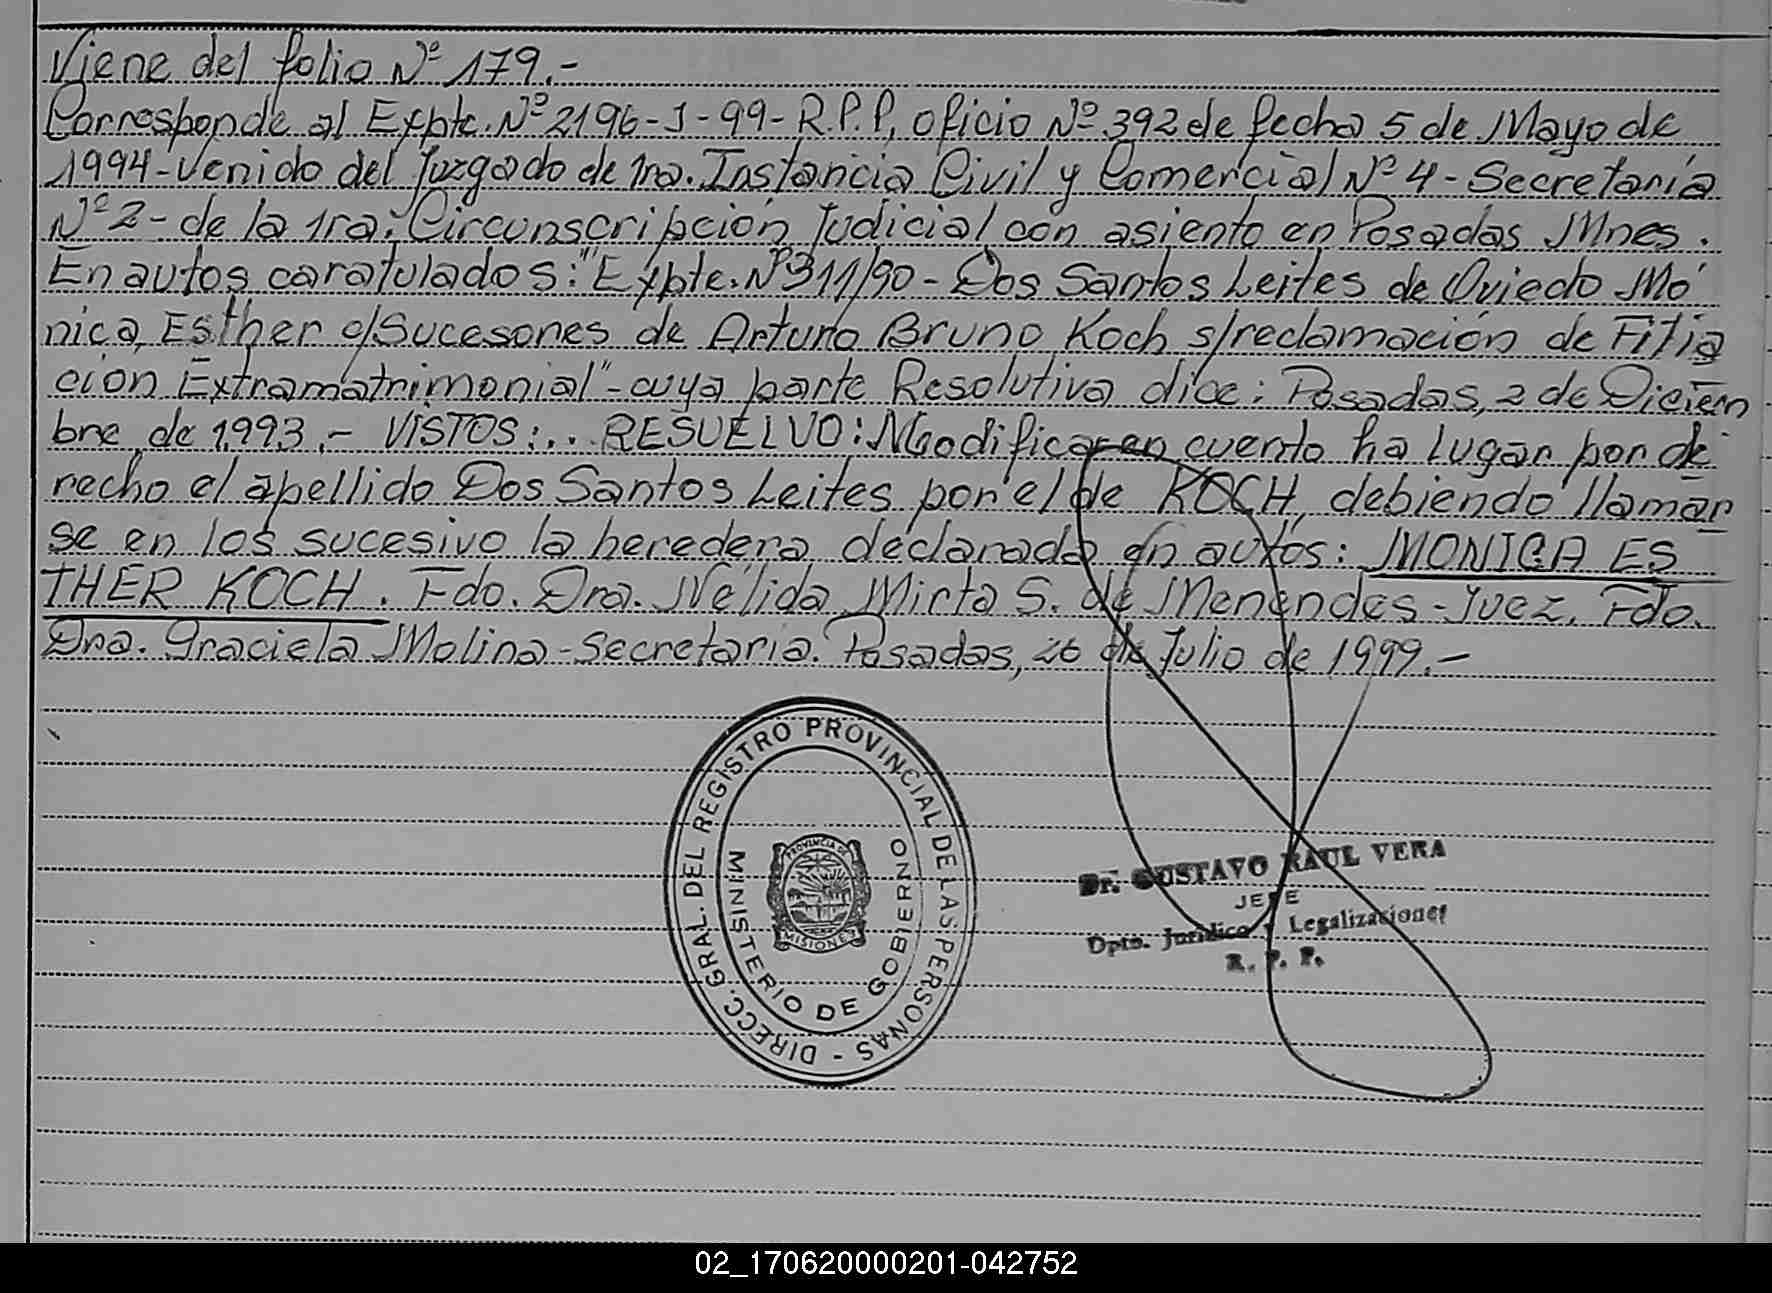 Viene del folio Nº 179.-
Corresponde al Expte. Nº 2196-J-99-R.P.P, oficio Nº 392 de fecha 5 de Mayo de
1994-Venido del Juzgado de 1ra. Instancia Civil y Comercial Nº 4-Secretaría
Nº 2-de la 1ra. Circunscripción Judicial con asiento en Posadas Mnes.
En autos caratulados: "Expte. Nº 311/90-Dos Santos Leites de Oviedo Mó
nica, Esther c/Sucesores de Arturo Bruno Koch s/reclamación de Filia
ción Extramatrimonial"-cuya parte Resolutiva dice: Posadas, 2 de Diciem
bre de 1993.- VISTOS:... RESUELVO: Modificar en cuento ha lugar por de
recho el apellido Dos Santos Leites por el de KOCH, debiendo llamar
se en los sucesivo la heredera declarada en autos: MONICA ES
THER KOCH. Fdo. Dra. Nélida Mirta S. de Menendes-Juez. Fdo.
Dra. Graciela Molina-Secretaria. Posadas, 26 de Julio de 1999.-
DIRECC. GRAL. DEL REGISTRO PROVINCIAL DE LAS PERSONAS -
MINISTERIO DE GOBIERNO
PROVINCIA DE
MISIONES
Dr. GUSTAVO RAUL VERA
JEFE
Dpto. Jurídico y Legalizaciones
R. P. P.
02_170620000201-042752